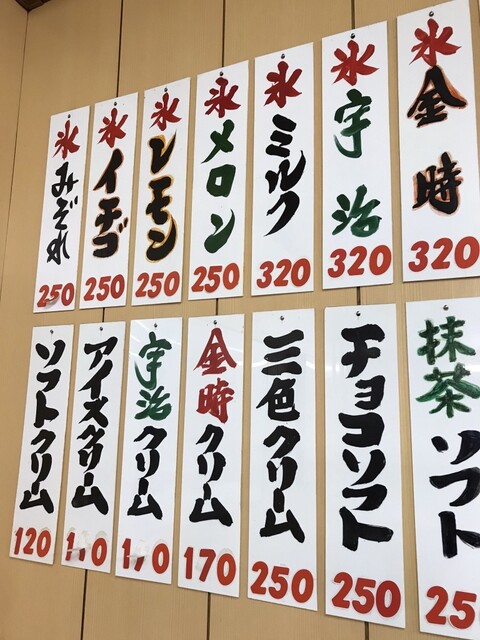 氷金時
320
氷宇治
320
氷ミルク
320
氷メロン
250
氷レモン
250
氷イチゴ
250
氷みぞれ
250
抹茶ソフト
250
チョコソフト
250
三色クリーム
250
金時クリーム
170
宇治クリーム
アイスクリーム
ソフトクリーム
120